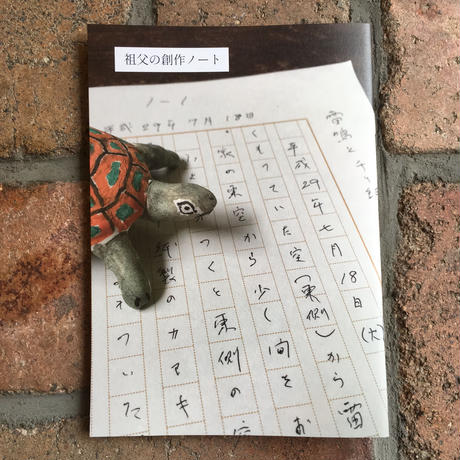 祖父の創作ノート
平成29年7月18日
雷鳴と
平成29年七月18日(火)
くもっていた空(東側)から雷
家の東空から少し間をお
つくと東側の空
紙製のカマキ
ついた